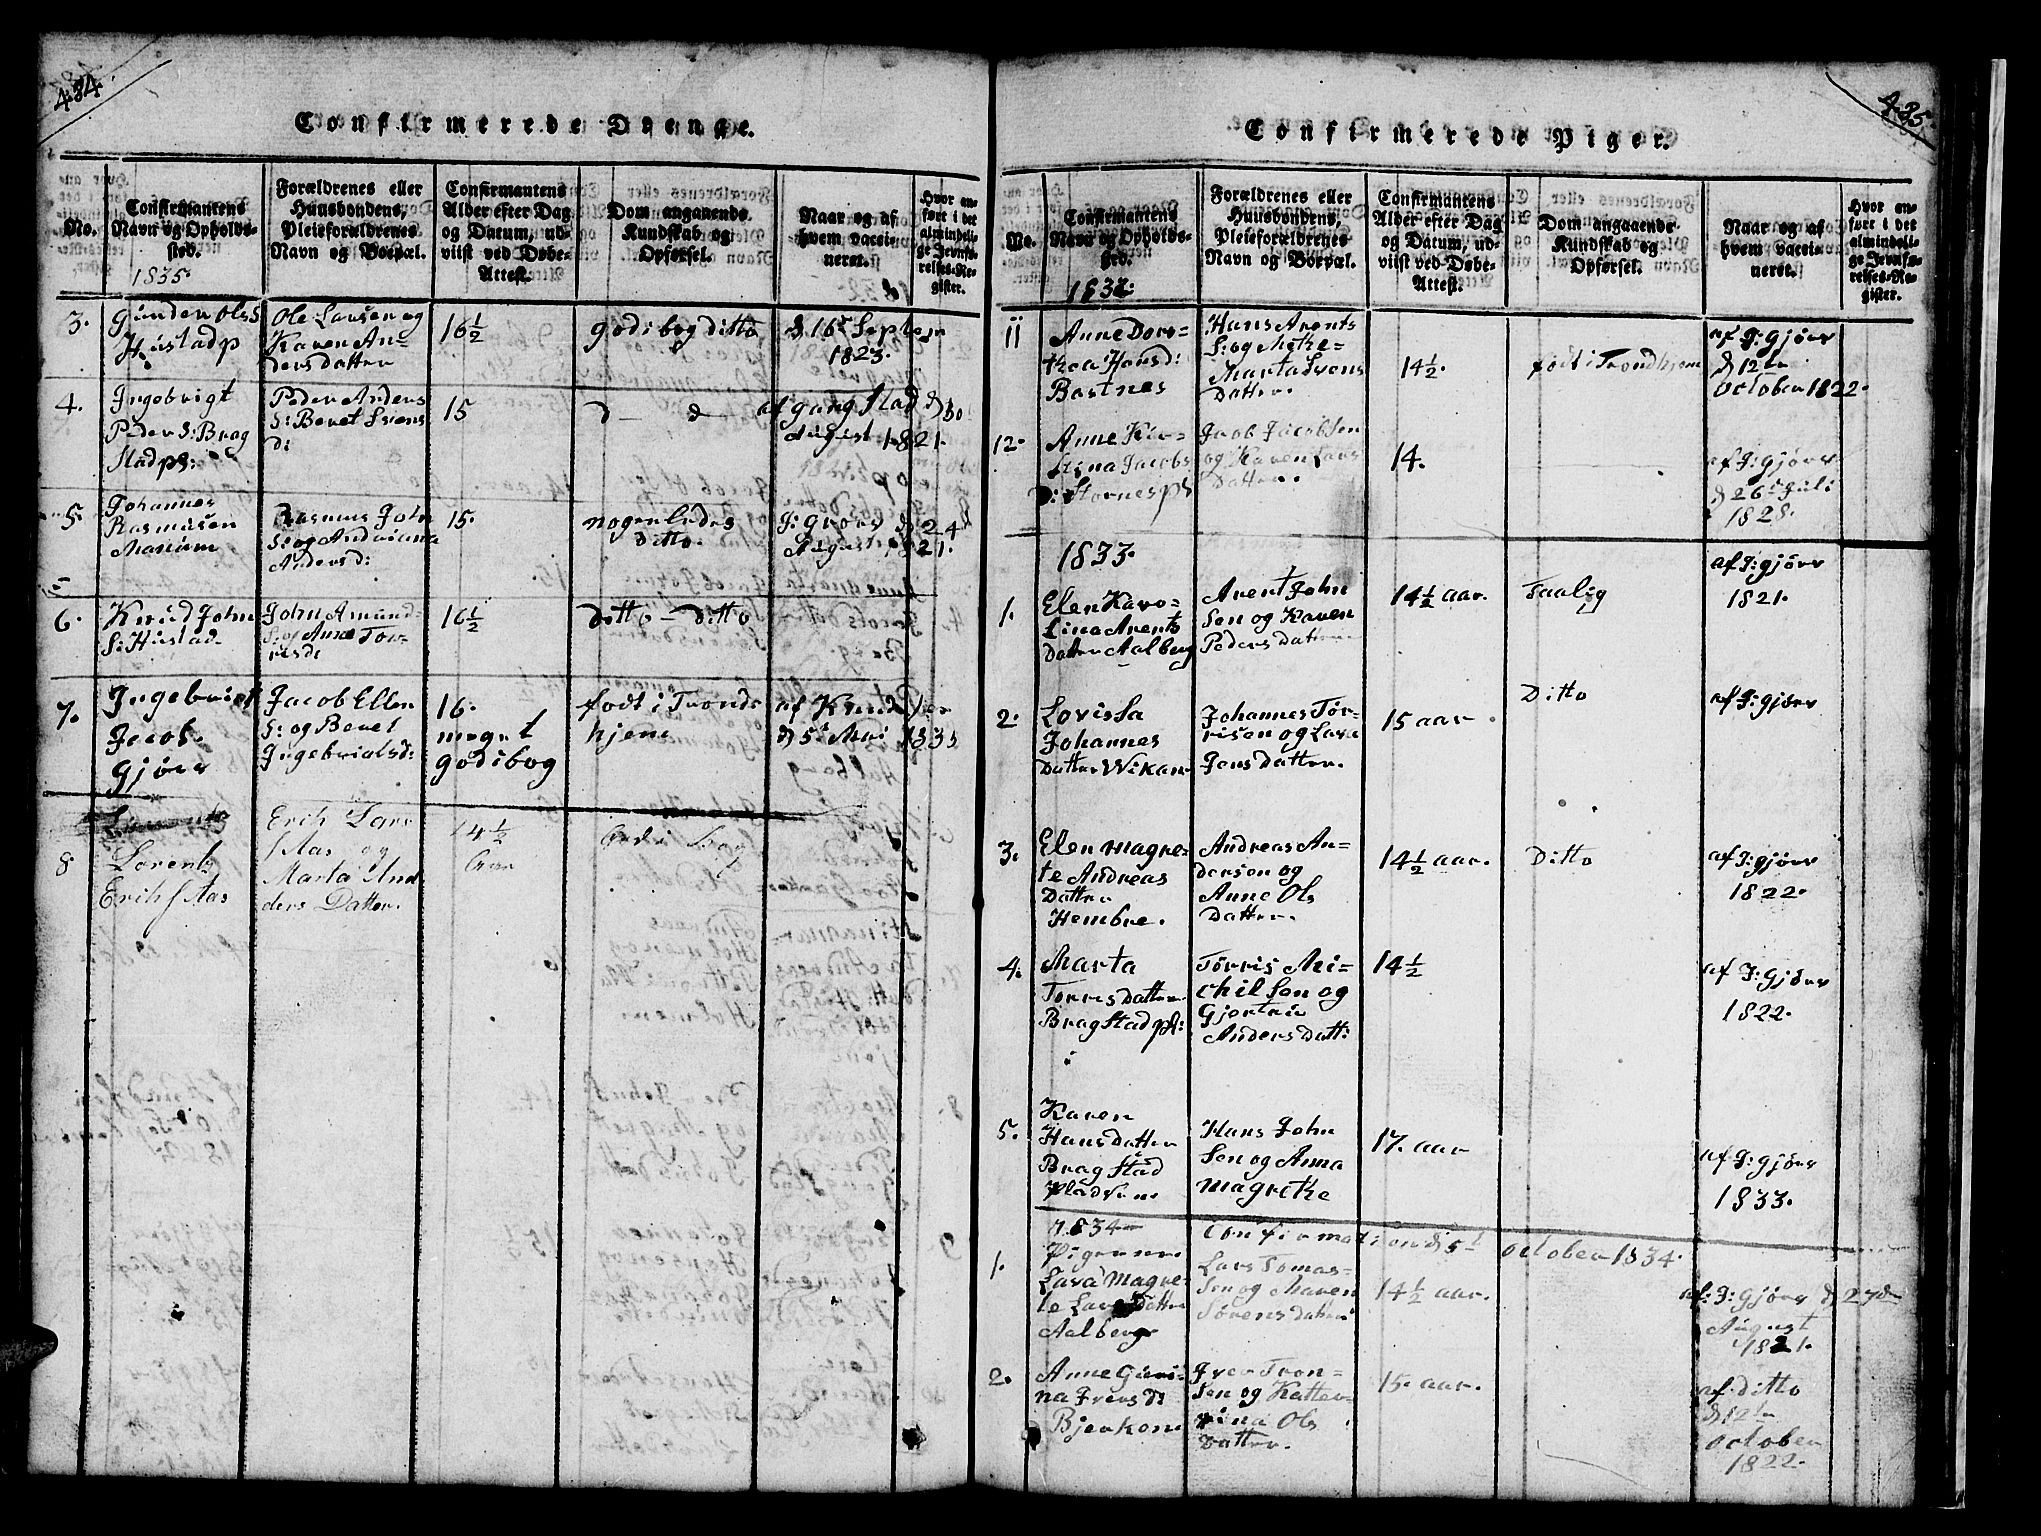 434
Confirmerede Drenge.
No.
Confirmantens
Navn og Opholds-
sted.
1835.
Forældrenes eller
Huusbondens,
Pleieforældrenes
Navn og Boepæl.
Confirmantens
Alder efter Dag
og Datum, ud-
viist ved Døbe-
Attest.
Dom angaaende
Kundskab og
Opførsel.
Naar og af
hvem vacci-
neret.
Hvor an-
ført i det
almindeli-
ge Jevnfø-
relses-Re-
gister.
3.
Gunder Ols S
Hustadp
Ole Larsen og
Karen An-
ders datter
16 1/2
god i bog ditto
d 16 Septem
1823.
4.
Ingebrigt
Peder S: Brag
Stadpl:
Peder Anders
S: Beret Siens
d:
15
d — d
af gang Stad d 30
August 1821.
5.
Johannes
Rasmusen
Marium
Rasmus John
S: og Andriana
Anders d:
15.
nogenledes
ditto.
J: Gjørs d 24
August, 1821.
6.
Knud John
S: Hustad
John Amund-
S: og Anne Tor-
ris d:
16 1/2
ditto — ditto
7.
Ingebrigt
Jacob
Gjørv
Jacob Ellen
S: og Beret
Ingebrigtsd:
16.
meget
god i bog
født i Trond
hjem
af Knud
d 5 Mai 1835
8
Lorents
Erich S Aas
Erich Lars
S Aas og
Marta And
ders Datter.
14 1/2
Aar
God i bog
435
Confirmerede Piger.
No.
Confirmantens
Navn og Opholds-
sted.
1832.
Forældrenes eller
Huusbondens,
Pleieforældrenes
Navn og Boepæl.
Confirmantens
Alder efter Dag
og Datum, ud-
viist ved Døbe-
Attest.
Dom angaaende
Kundskab og
Opførsel.
Naar og af
hvem vacci-
neret.
Hvor an-
ført i det
almindeli-
ge Jevnfø-
relses-Re-
gister.
11
Anne Doro-
thea Hansd:
Bastnes
Hans Arents
S: og Meke-
Marta Svens
Datter.
14 1/2.
født i Trondhjem
af J: Gjørv
d 12te
October 1822.
12.
Anne Kir-
Stina Jacobs
D: Stornespl
Jacob Jacobsen
og Karen Lars
Datter.
14.
af J: Gjørv
d 26 Juli
1828.
1833.
1.
Elen Karo-
Line Arents
Datter Aalberg
Arent John
Sen og Karen
Peders datter
14 1/2 aar.
Taalig
af J: gjørv
1821.
2.
Lovissa
Johannes
Datter Wikan
Johannes Tør-
risen og Lava
Jens datter.
15 aar.
Ditto
af J: gjørv
3.
Elen magre-
te Andreas
Datter
Hembre.
Andreas An-
dersen og
Anne Ols
Datter.
14 1/2 aar.
Ditto
af J: gjørv
1822.
4.
Marta
Torris datter
Brag Stad pl:
Tørris Mi-
chil Sen og
Gjertru
Anders datt:
14 1/2
af J: Gjørv
1822.
5.
Karen
Hans datter
Brag Stad
Pladsen
Hans John
Sen og Anna
magrethe
17. aar
af J: gjørv
1833.
1834
Pigerne
Confirmation d 5t October 1834.
1.
Lava Magre-
te Lars Datter
Aalberg
Lars Tomas-
Sen og Maren
Sørens datter
14 1/2 aar.
af: J: Gjørv d 27de
August
1821.
2.
Anne Guri-
na Ivers d
Bjerkem
Iver Tron-
Sen og Katter-
rina Ols
Datter.
15. aar.
af ditto
d 12te
October
1822.